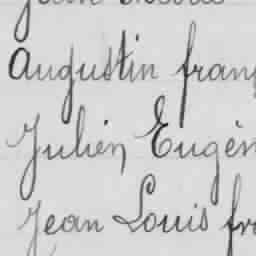 Jean
Augustin fran
Julien Eugèn
Jean Louis fr